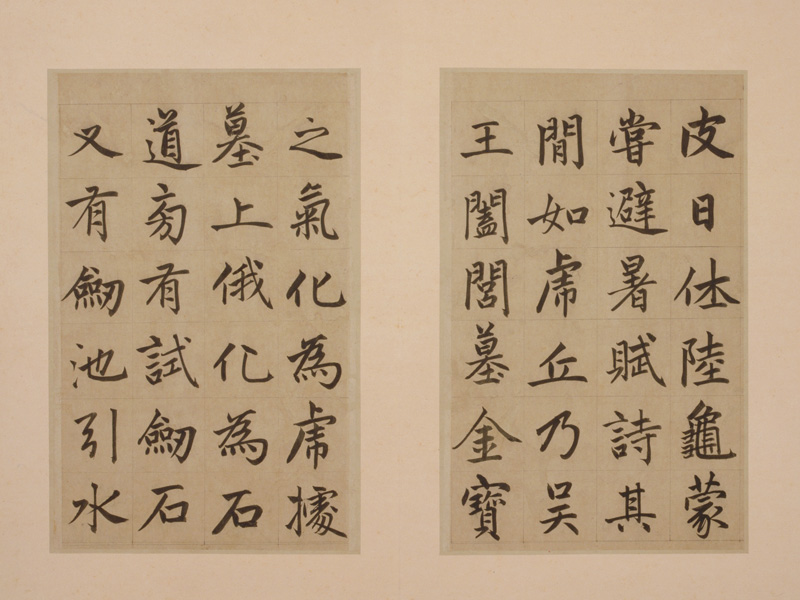 皮日休陸龜蒙
嘗避暑賦詩其
間如虎丘乃吳
王闔閭墓金寶
之氣化為虎據
墓上俄化為石
道旁有試劒石
又有劒池引水